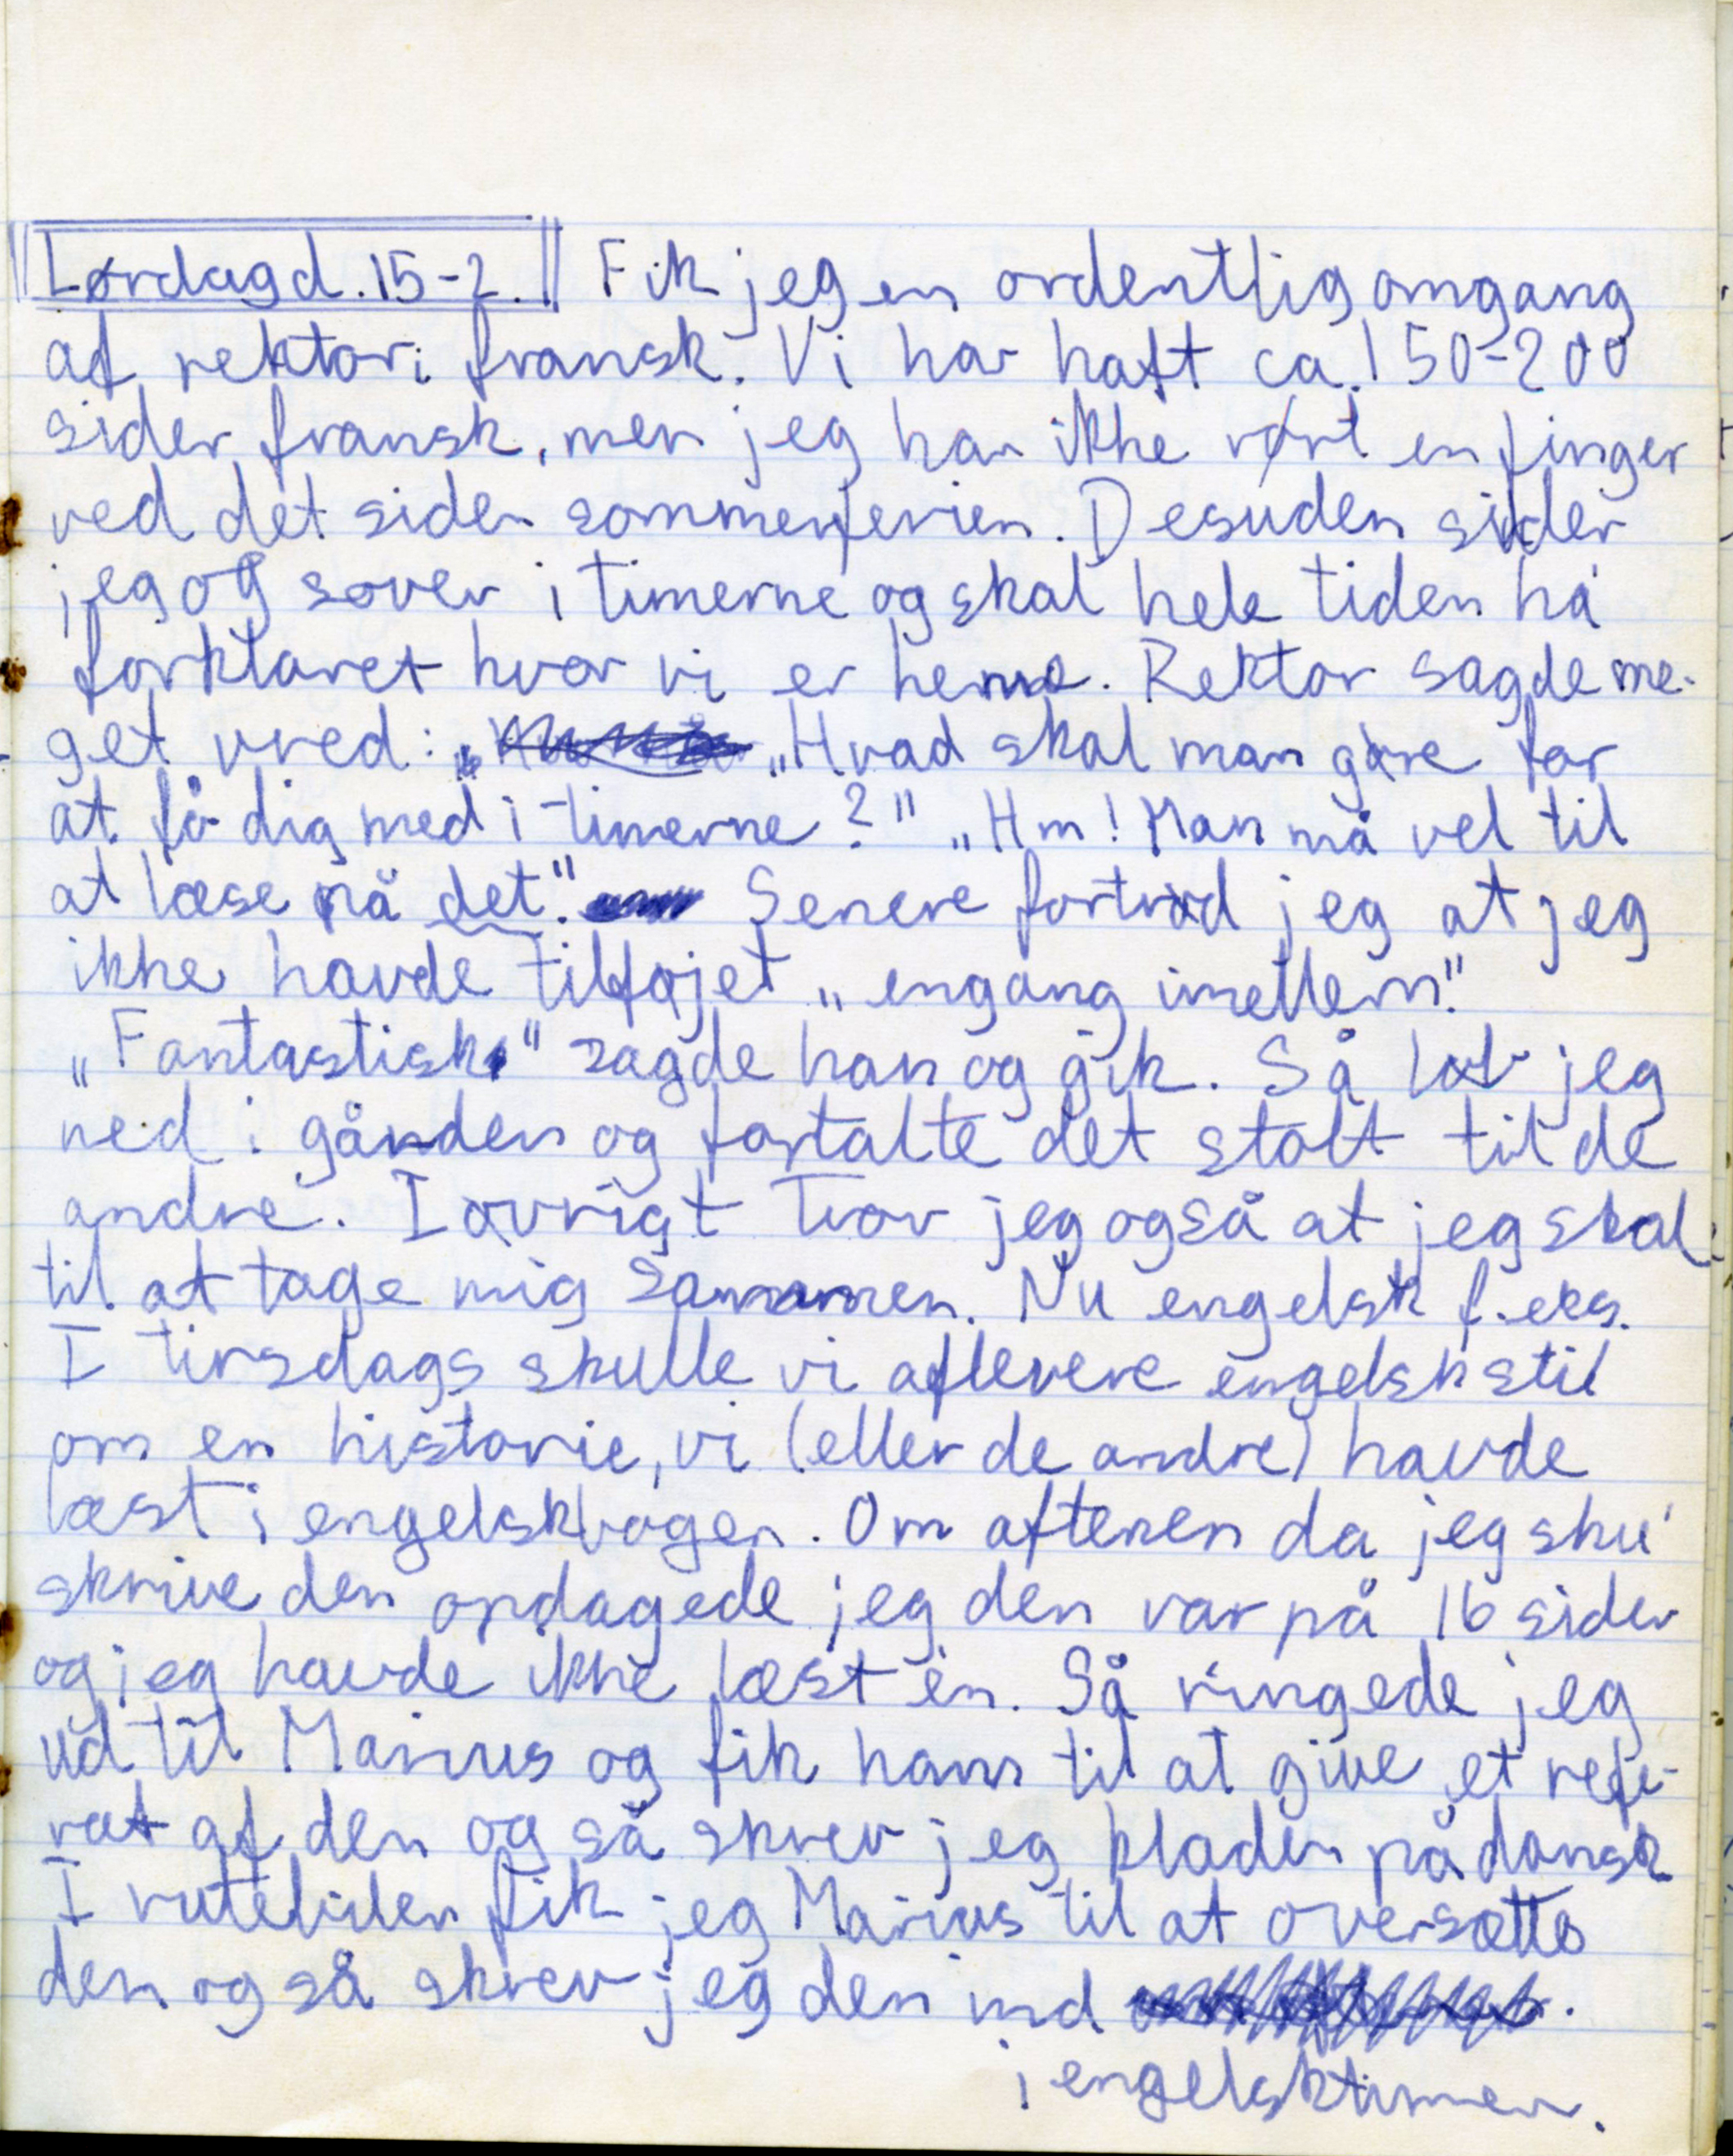 Lørdag d. 15-2. Fik jeg en ordentlig omgang
af rektor i fransk. Vi har haft ca. 150-200
sider fransk, men jeg har ikke rørt en finger
ved det siden sommerferien. Desuden sidder
jeg og sover i timerne og skal hele tiden ha'
forklaret hvor vi er henne. Rektor sagde me-
get vred: „Hvad skal man gøre for
at få dig med i timerne?" „Hm! Man må vel til
at læse på det." Senere fortrød jeg at jeg
ikke havde tilføjet „engang imellem."
„Fantastisk" sagde han og gik. Så løb jeg
ned i gården og fortalte det stolt til de
andre. I øvrigt tror jeg også at jeg skal
til at tage mig sammen. Nu engelsk f.eks.
I tirsdags skulle vi aflevere engelsk stil
om en historie, vi (eller de andre) havde
læst i engelskbogen. Om aftenen da jeg sku'
skrive den opdagede jeg den var på 16 sider
og jeg havde ikke læst én. Så ringede jeg
ud til Marius og fik ham til at give et refe-
rat af den og så skrev jeg kladen på dansk
I rutebilen fik jeg Marius til at oversætte
den og så skrev jeg den ind .
i engelsktimen.